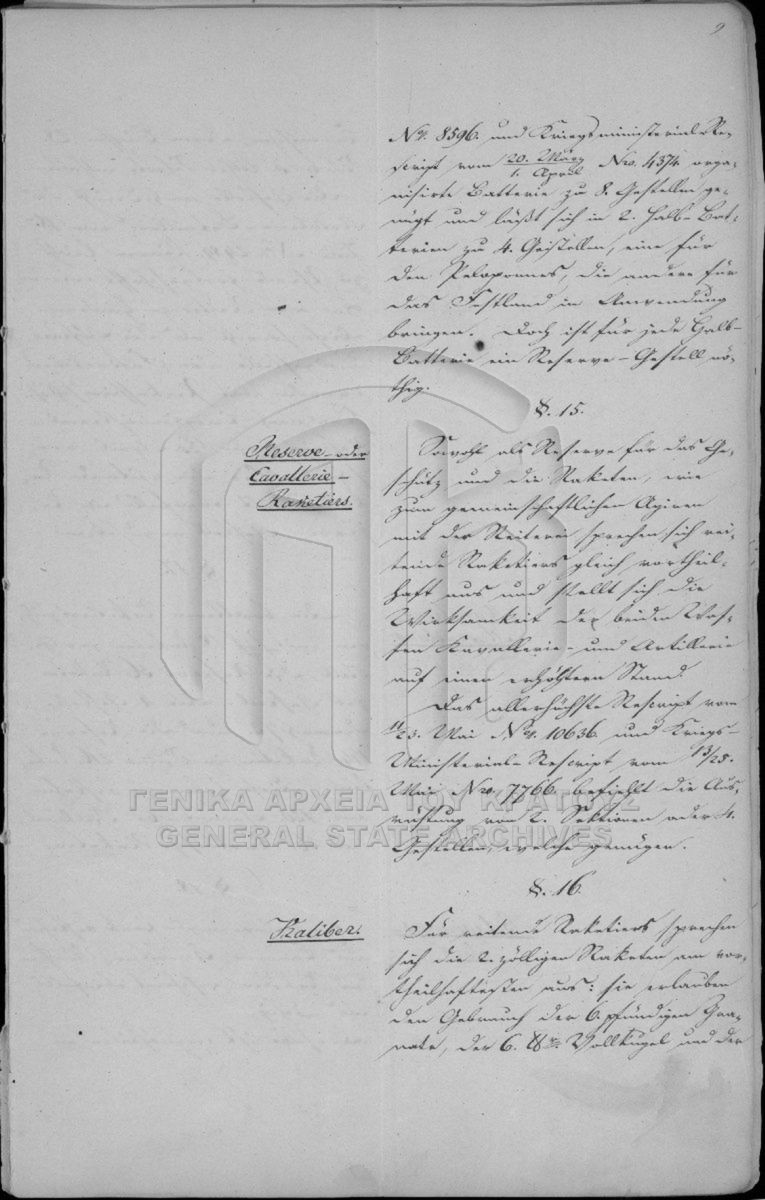 9
Nr. 8596. und Kriegsministerial Re-
script vom 20. März / 1. April Nro. 4374 orga-
nisirte Batterie zu 8. Gestellen ge-
nügt und läßt sich in 2. Halb-Bat-
terien zu 4. Gestellen, eine für
den Peloponnes, die andere für
das Festland in Anwendung
bringen. Doch ist für jede Halb-
Batterie ein Reserve-Gestell nö-
thig.
§. 15.
Reserve- oder
Cavallerie-
Raketiers.
Sowohl als Reserve für das Ge-
schütz und die Raketen, wie
zum gemeinschaftlichen Agiren
mit der Reiterei sprechen sich rei-
tende Raketiers gleich vortheil-
haft aus und stellt sich die
Wirksamkeit der beiden Waf-
fen Kavallerie- und Artillerie
auf einen erhöhtern Stand.
Das allerhöchste Rescript vom
11/23. Mai Nr. 10636 und Kriegs-
Ministerial-Rescript vom 13/25.
Mai Nro. 7766. befiehlt die Aus-
rüstung von 2. Sektionen oder 4.
Gestellen, welche genügen.
ΓΕΝΙΚΑ ΑΡΧΕΙΑ ΤΟΥ ΚΡΑΤΟΥΣ
GENERAL STATE ARCHIVES
§. 16.
Kaliber.
Für reitende Raketiers sprechen
sich die 2. zölligen Raketen am vor-
theilhaftesten aus: sie erlauben
den Gebrauch der 6. pfündigen Gra-
nate, der 6. Vollkugel und der